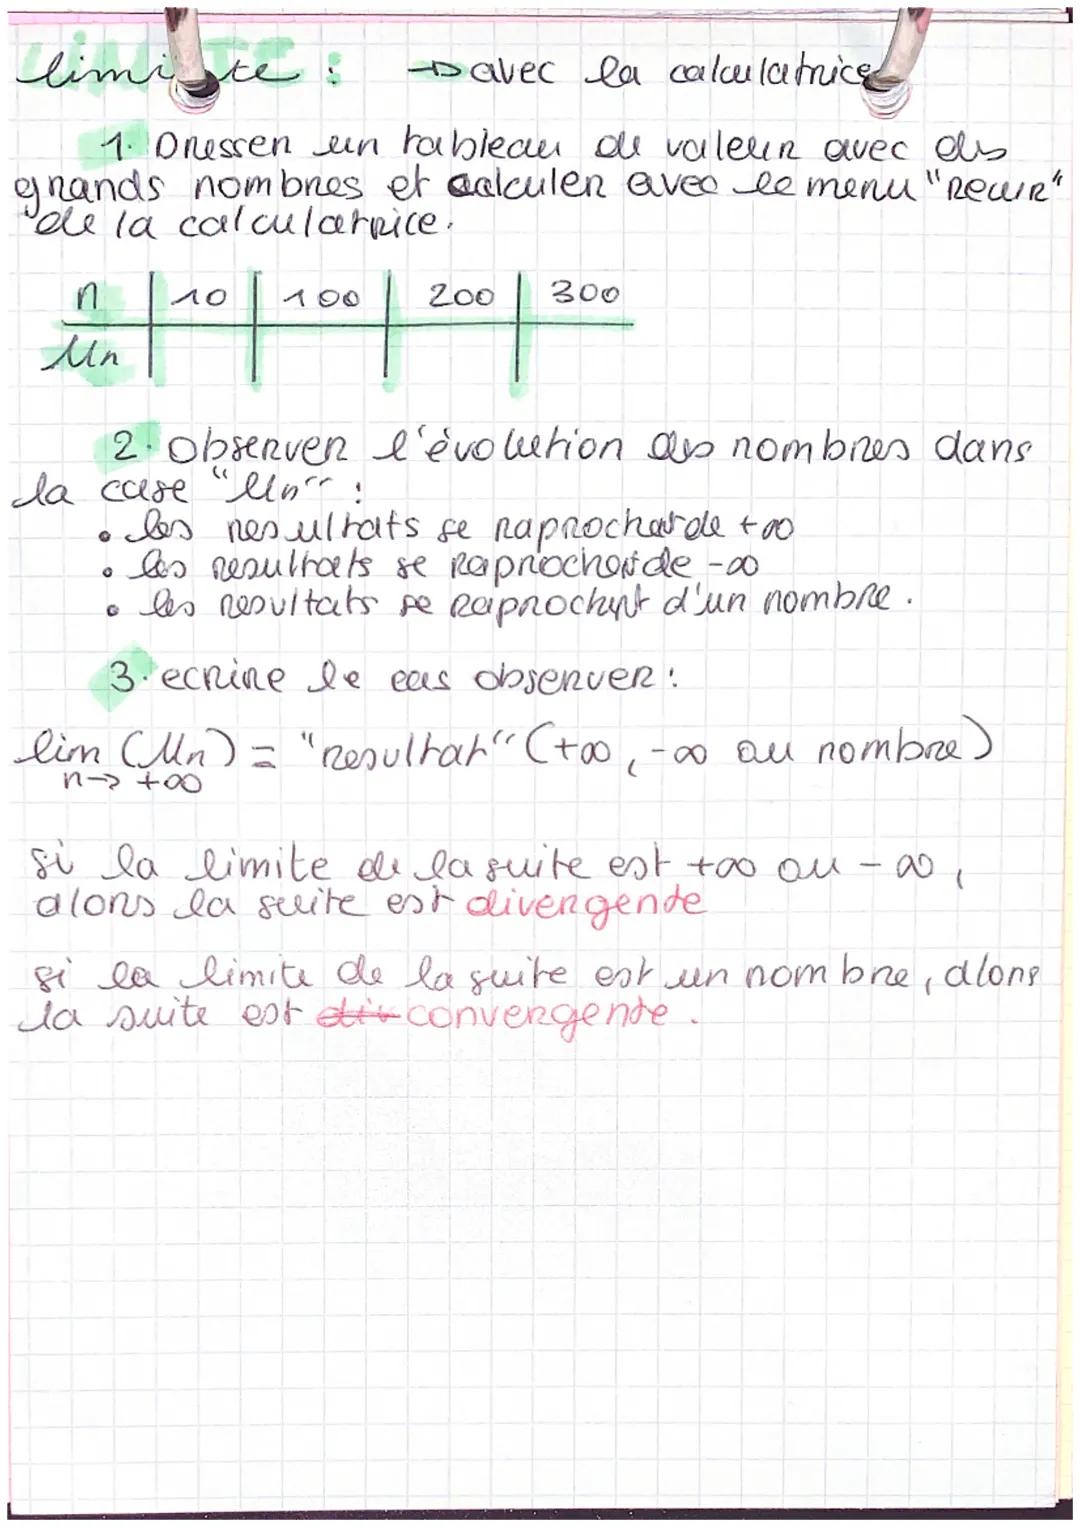 limite : → avec la calculatrice
1. Dresser un tableau de valeur avec des
grands nombres et calculer avec le menu "Recur"
de la calculatrice.
n 10 100 200 300
Un
2. Observer l'évolution des nombres dans
la case "Un" :
• les resultats se raprochent de +∞
• les resultats se raprochent de -∞
• les resultats se raprochent d'un nombre.
3. ecrire le cas observer :
lim (Un) = "resultat" (+∞, -∞ ou nombre)
n→ +∞
si la limite de la suite est +∞ ou -∞,
alors la suite est divergente
si la limite de la suite est un nombre, alors
la suite est div convergente.